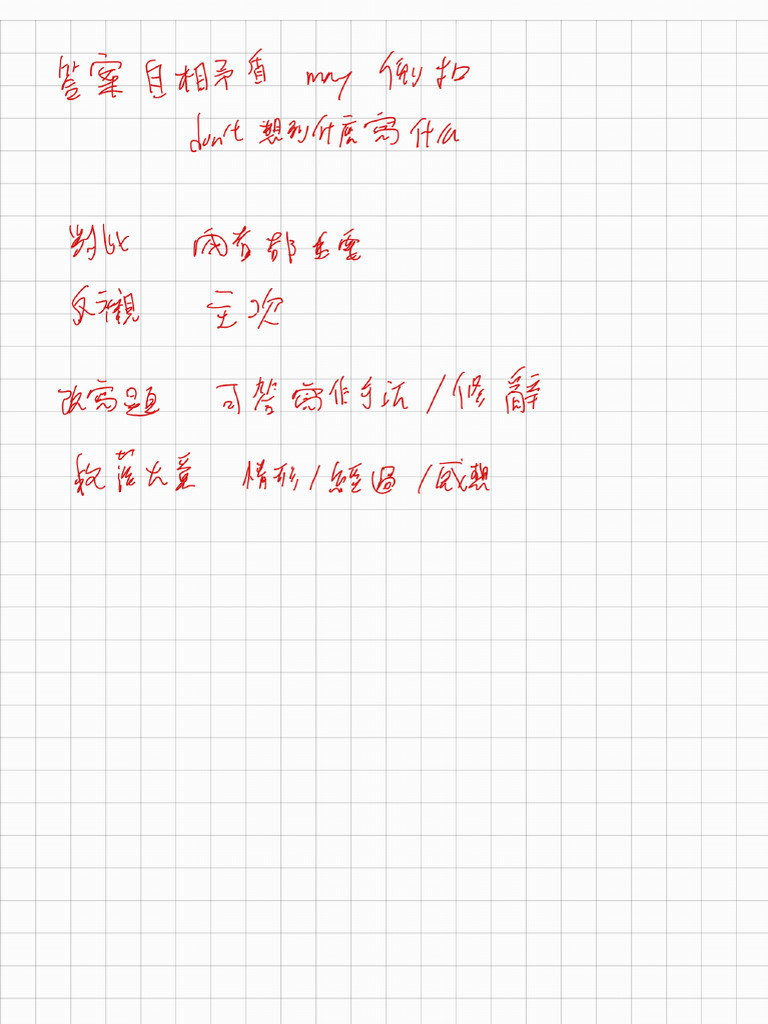 答案自相矛盾 may 倒扣
don't 想到什麼寫什么
對比 兩者都重要
反襯 主次
改寫題 可答寫作手法/修辭
段落大意 情形/經過/感想